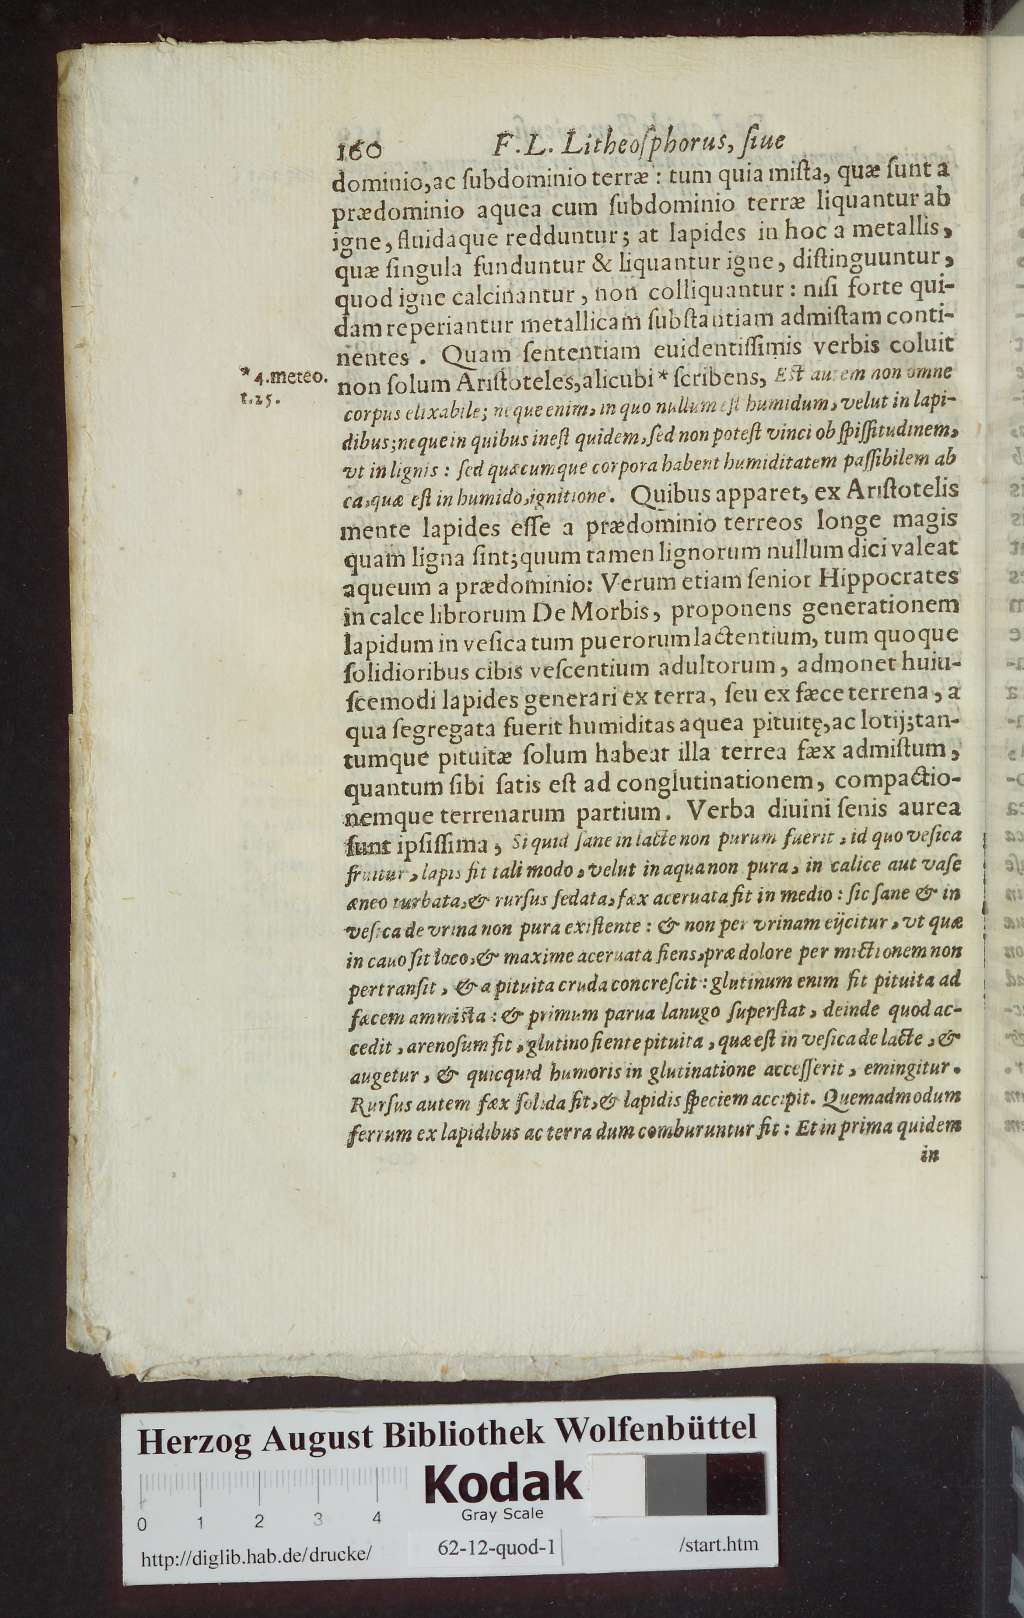 160 F. L. Litheoſphorus, ſiue
dominio, ac ſubdominio terræ : tum quia miſta, quæ ſunt a
prædominio aquea cum ſubdominio terræ liquantur ab
igne, fluidaque redduntur; at lapides in hoc a metallis,
quæ ſingula funduntur & liquantur igne, diſtinguuntur,
quod igne calcinantur, non colliquantur : niſi forte qui-
dam reperiantur metallicam ſubſtantiam admiſtam conti-
nentes. Quam ſententiam euidentiſſimis verbis coluit
* 4. meteo.
t. 25.
non ſolum Ariſtoteles, alicubi * ſcribens, Eſt autem non omne
corpus elixabile; neque enim, in quo nullum eſt humidum, velut in lapi-
dibus; neque in quibus ineſt quidem, ſed non poteſt vinci ob ſpiſſitudinem,
vt in lignis : ſed quæcumque corpora habent humiditatem paſſibilem ab
ea, quæ eſt in humido, ignitione. Quibus apparet, ex Ariſtotelis
mente lapides eſſe a prædominio terreos longe magis
quam ligna ſint; quum tamen lignorum nullum dici valeat
aqueum a prædominio: Verum etiam ſenior Hippocrates
in calce librorum De Morbis, proponens generationem
lapidum in veſica tum puerorum lactentium, tum quoque
ſolidioribus cibis veſcentium adultorum, admonet huiu-
ſcemodi lapides generari ex terra, ſeu ex fæce terrena, a
qua ſegregata fuerit humiditas aquea pituitę, ac lotij; tan-
tumque pituitæ ſolum habeat illa terrea fæx admiſtum,
quantum ſibi ſatis eſt ad conglutinationem, compactio-
nemque terrenarum partium. Verba diuini ſenis aurea
ſunt ipſiſſima, Si quid ſane in lacte non purum fuerit, id quo veſica
fruitur, lapis fit tali modo, velut in aqua non pura, in calice aut vaſe
æneo turbata, & rurſus ſedata, fæx aceruata fit in medio : ſic ſane & in
veſica de vrina non pura exiſtente : & non per vrinam eijcitur, vt quæ
in cauo ſit loco, & maxime aceruata fiens, præ dolore per mictionem non
pertranſit, & a pituita cruda concreſcit : glutinum enim fit pituita ad
fæcem ammiſta : & primum parua lanugo ſuperſtat, deinde quod ac-
cedit, arenoſum fit, glutino fiente pituita, quæ eſt in veſica de lacte, &
augetur, & quicquid humoris in glutinatione acceſſerit, emingitur.
Rurſus autem fæx ſolida fit, & lapidis ſpeciem accipit. Quemadmodum
ferrum ex lapidibus ac terra dum comburuntur fit : Et in prima quidem
in
Herzog August Bibliothek Wolfenbüttel
Kodak
Gray Scale
0 1 2 3 4
http://diglib.hab.de/drucke/ 62-12-quod-1 /start.htm